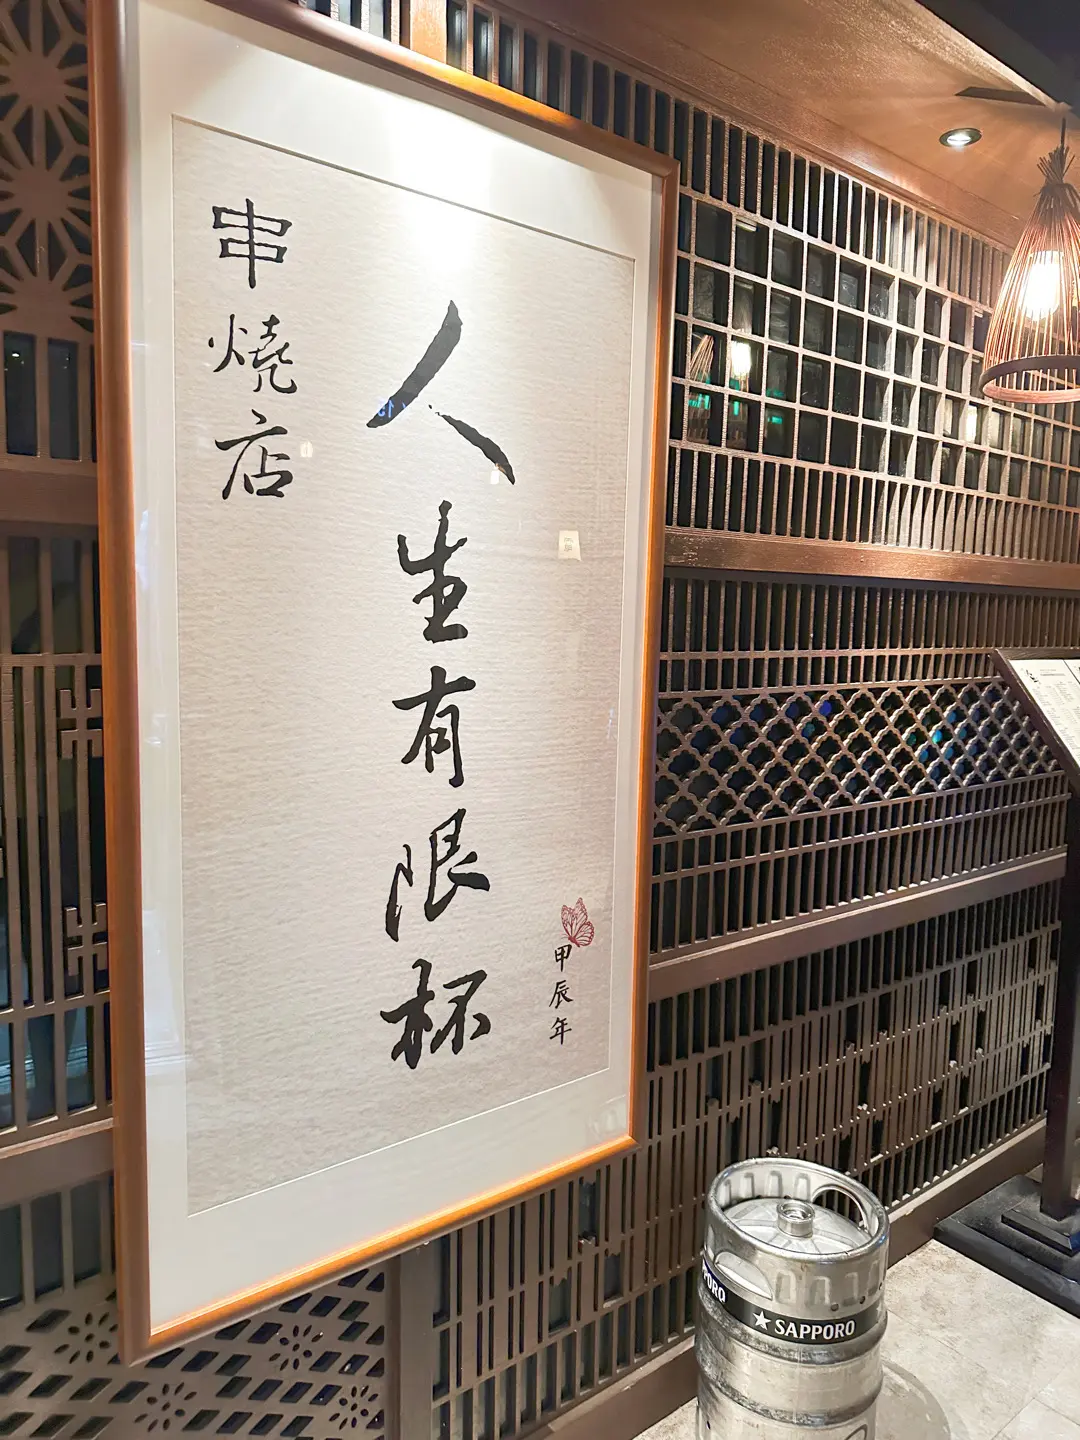 人生有限杯
串燒店
甲辰年
SAPPORO